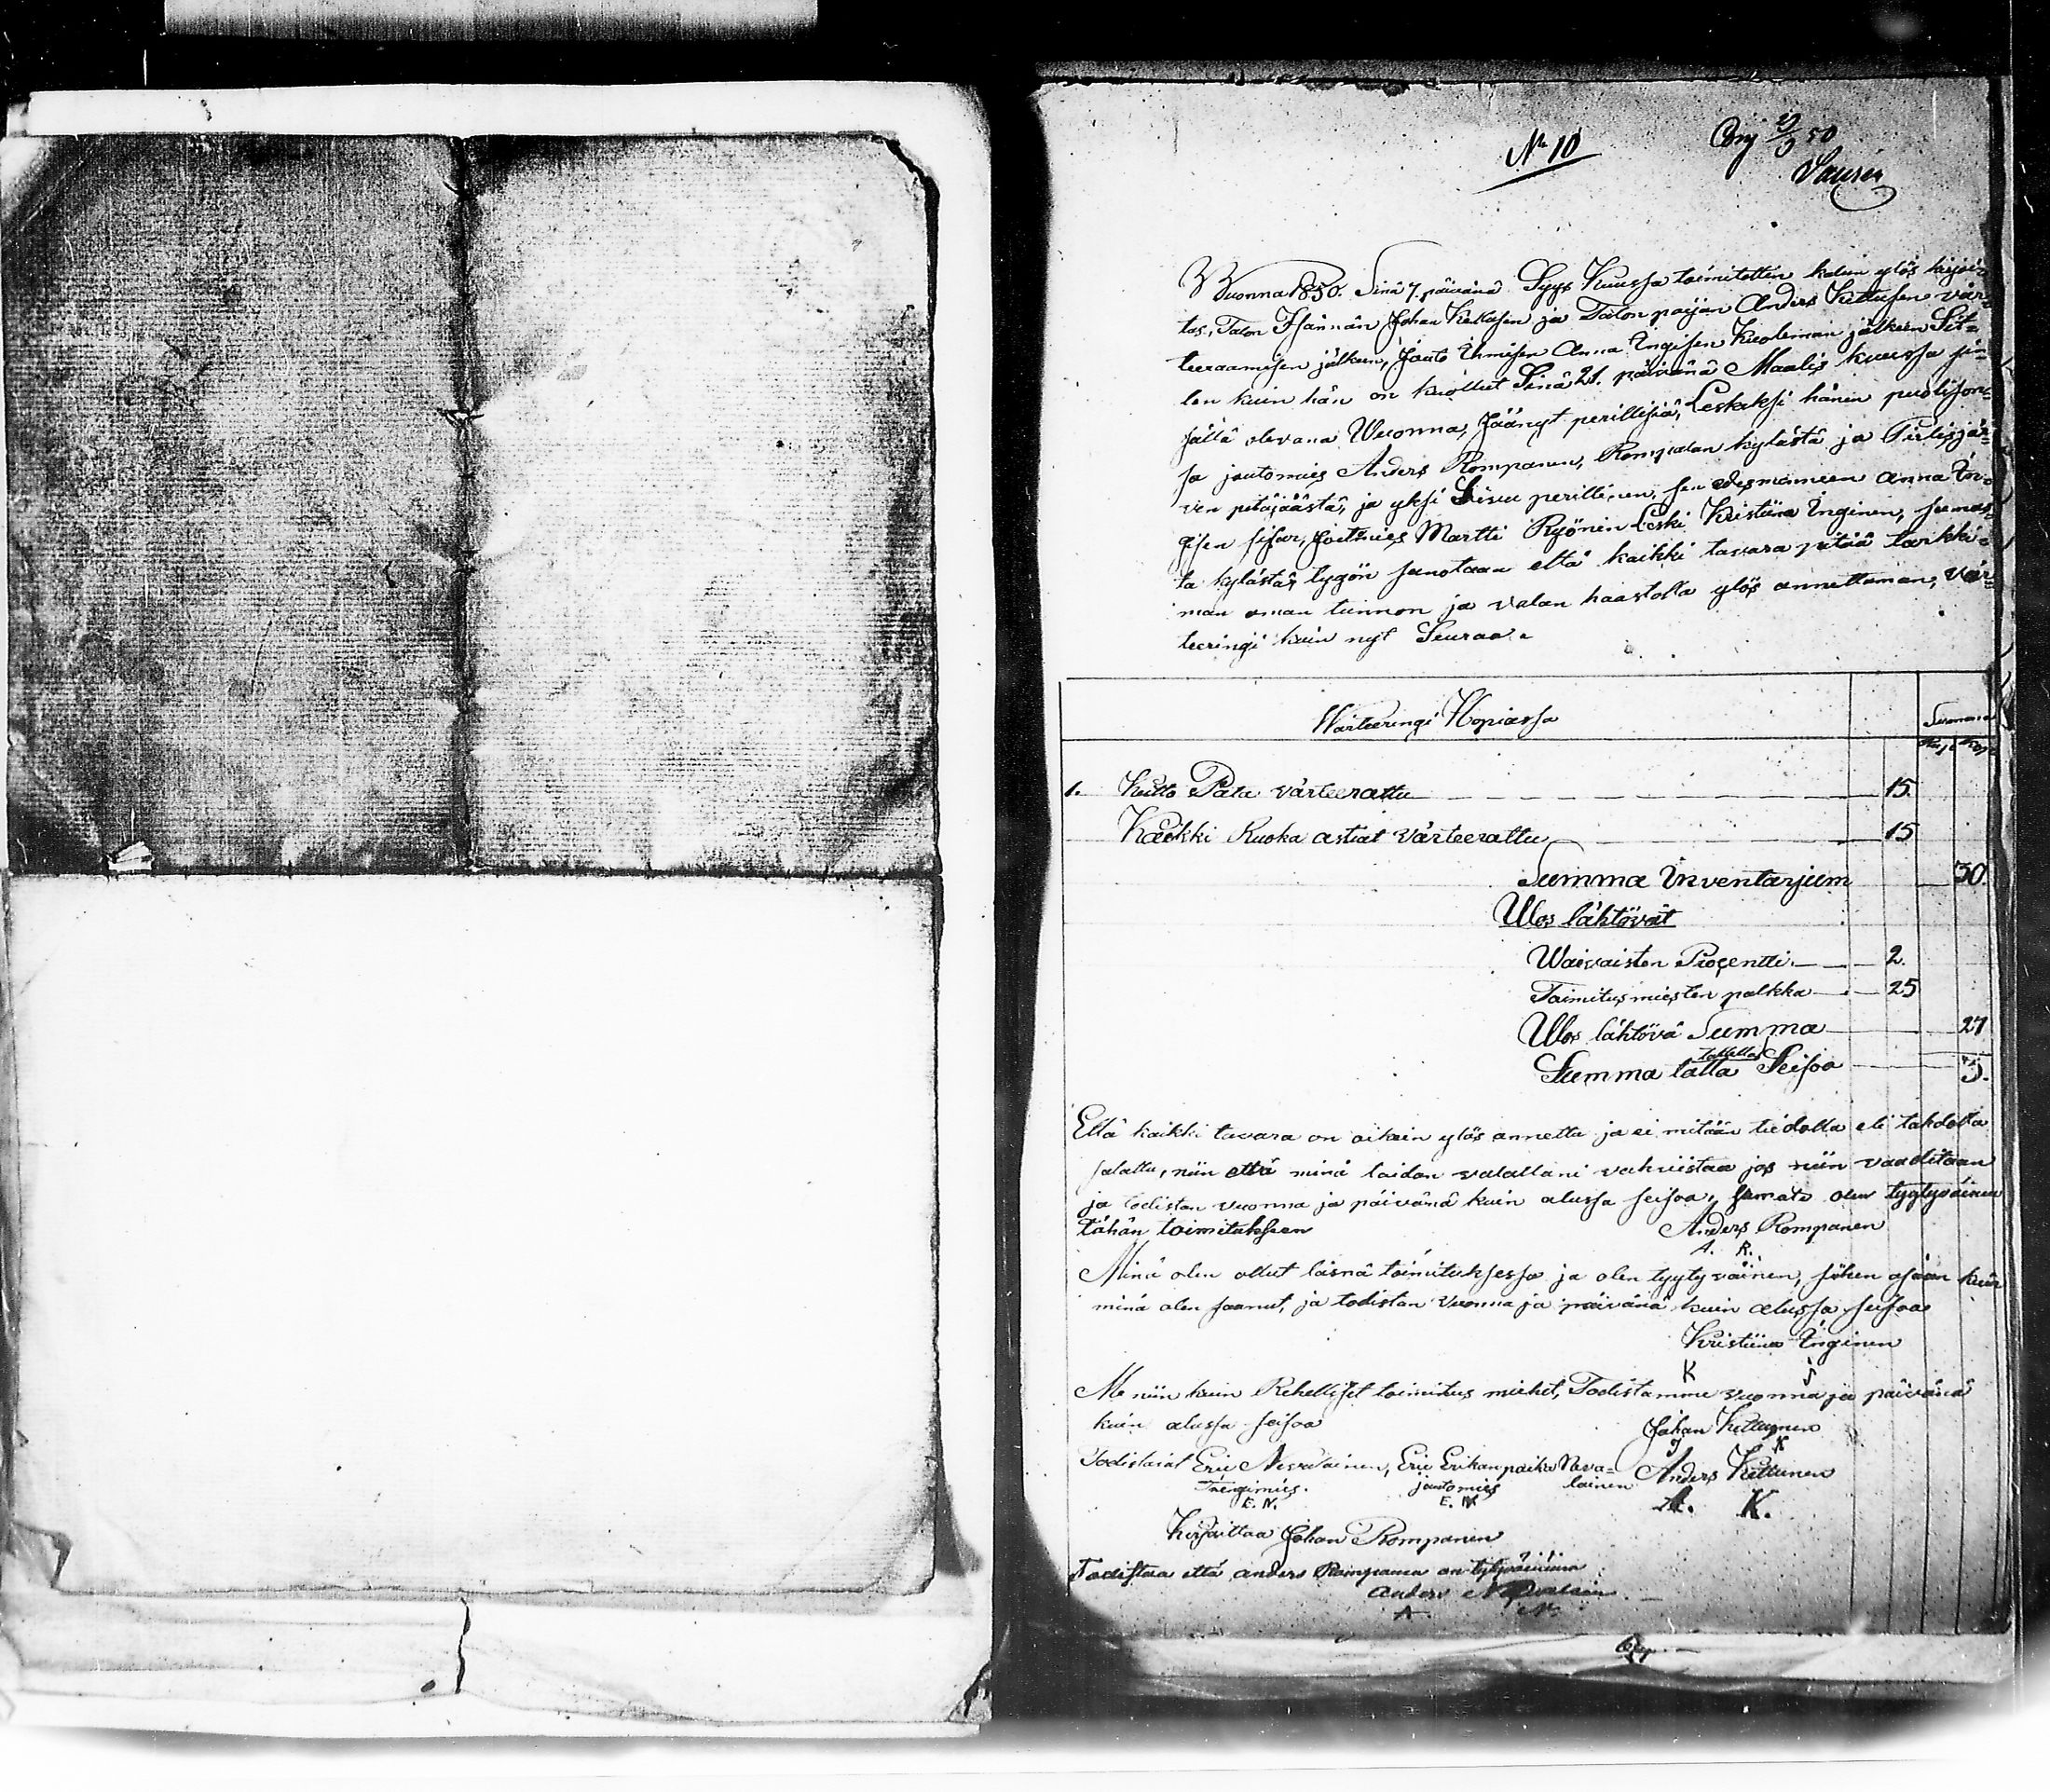 No 10
50
Wuonna 1850. Sinä 7. päivänä Syys Kuussa toimitettin kalun ylös kirjoi-
tus, Talon Isännän Johan Kettusen ja Talon pojan Anders Kettusen vär-
teeraamisen jälkeen, Jouto Ihmisen Anna Ingisen Kuoleman jälkeen Sit-
len kuin hän on kuollut Sinä 21. päivänä Maalis kuussa si-
sällä olevana Wuonna, Jäänyt perillisiä, Leskeksi hänen puolison-
sa joutomies Anders Rompanen, Rompalan kylästä ja Pielisjär-
ven pitäjäästä, ja yksi Sivu perillinen, sen edesmänneen Anna In-
gisen sisar, Martti Ryönin Leski Kristiina Inginen, samas-
ta kylästä, tygön sanotaan että kaikki tavara pitää tarkki-
man oman tunnon ja valan haastolla ylös annettaman, vär-
teeringi kuin nyt Seuraa.
Wärteeringi Hopiassa Summa
Rup Kop
1. Kulto Pata värteerattu 15.
Kaikki Ruoka astiat värteerattu 15
Summa Inventarjum 30.
Ulos lähtövät
Waivaisten Prosentti 2.
Toimitus miesten palkka 25
Ulos lähtövä Summa 27
tallella
Summa tältä Seisoo 3.
Että kaikki tavara on oikein ylös annettu ja ei mitään tiedolla eli tahdolla
salattu, niin että minä taidan valallani vahvistaa jos niin vaaditaan
ja todistan vuonna ja päivänä kuin alussa seisoo, samate olen tyytyväinen
tähän toimitukseen Anders Rompanen
A. R.
Minä olen ollut läsnä toimituksessa ja olen tyytyväinen, siihen osaan kuin
minä olen saanut, ja todistan Vuonna ja päivänä kuin alussa seisoo
Kristiina Inginen
K I
Me niin kuin Rehelliset toimitus miehet, Todistamme vuonna ja päivänä
kuin alussa seisoo Johan Kettunen
J K
Todistavat Eric Nevalainen, Eric Erikanpoika Neva- Anders Kettunen
Trengimies. joutomies lainen A. K.
E. N. E. N.
Kirjoittaa Johan Rompanen
Todistaa että anders Rompanen on tytyväinen
anders Nevalainen
A N